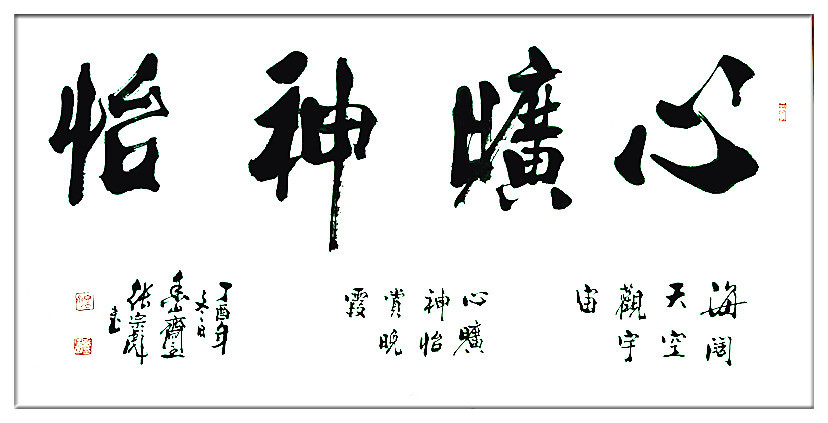 心曠神怡
海阔
天空
觀宇
宙
心曠
神怡
賞晚
霞
丁酉年
冬日
张宗彪
书